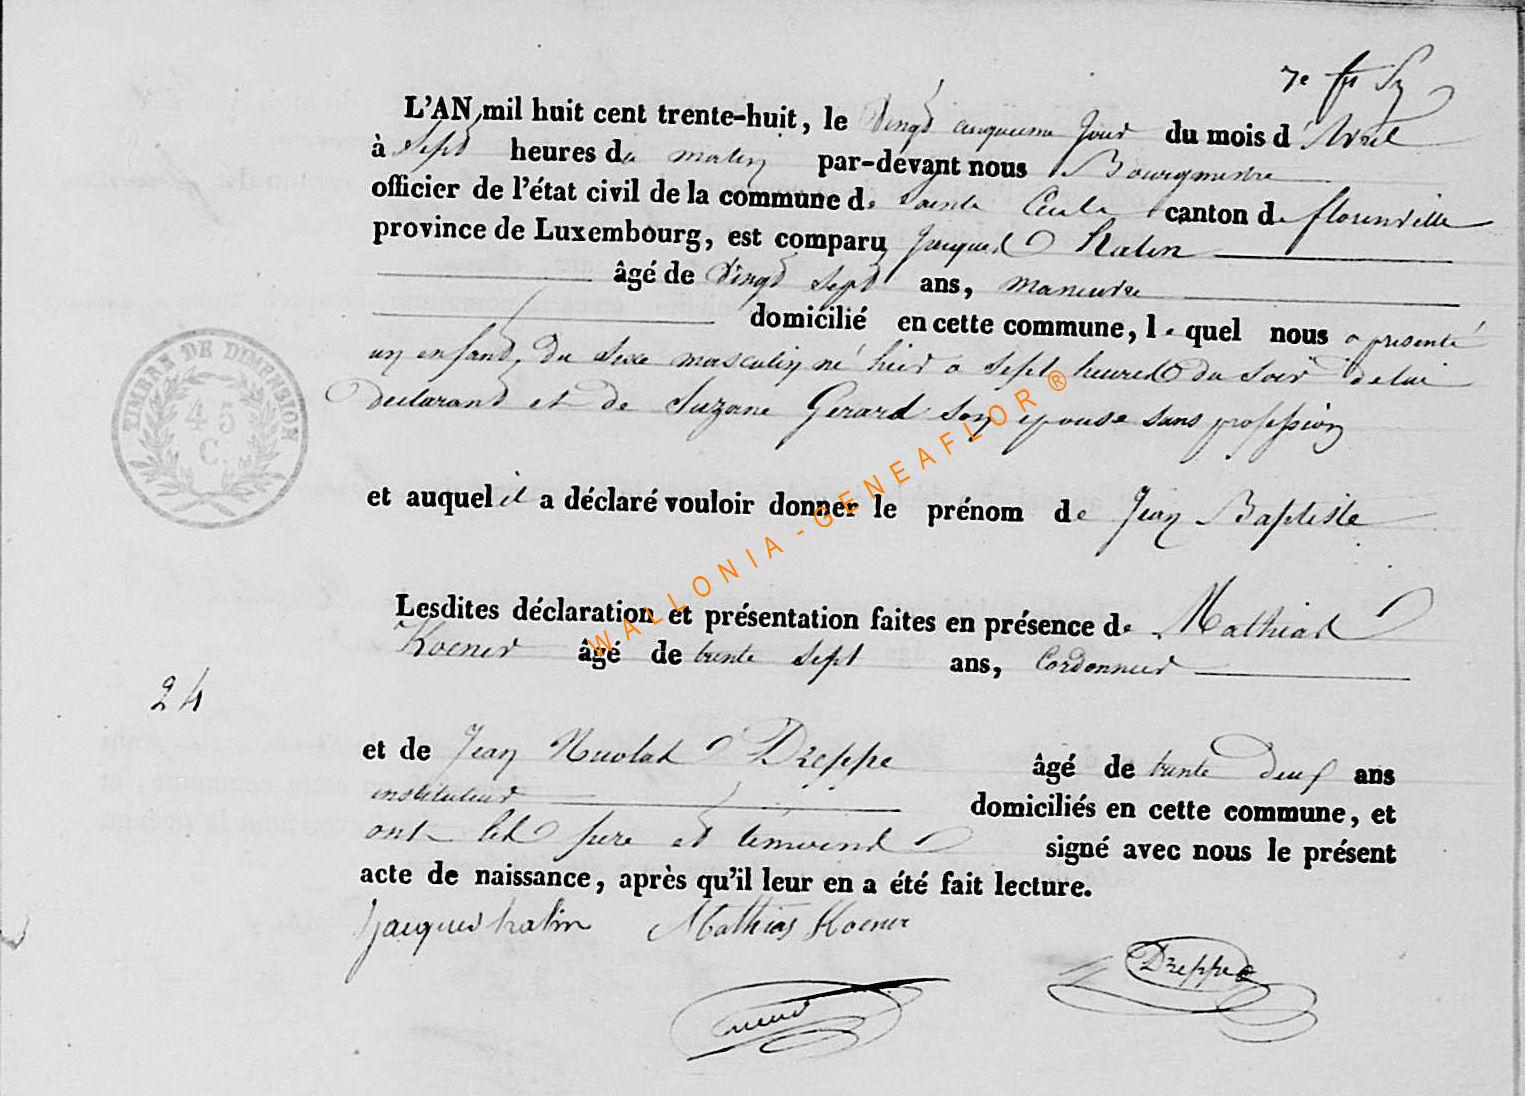 7e
L'AN mil huit cent trente-huit, le Vingt cinquieme jour du mois d'Avril
à Sept heures du matin par-devant nous Bourgmestre
officier de l'état civil de la commune de Sainte Cecile canton de florenville
province de Luxembourg, est comparu Jacques Halin
âgé de Vingt sept ans, maneuvre
domicilié en cette commune, lequel nous a presenté
un enfant, du sexe masculin né hier a sept heures du soir de lui
declarant et de Suzane Gerard son epouse sans profession
et auquel il a déclaré vouloir donner le prénom de Jean Baptiste
Lesdites déclaration et présentation faites en présence de Mathias
Koener âgé de trente sept ans, Cordonnier
24
et de Jean Nicolas Dreppe âgé de trente deux ans
instituteur domiciliés en cette commune, et
ont les pere et temoins signé avec nous le présent
acte de naissance, après qu'il leur en a été fait lecture.
Jacques halin Mathias Koener
Dreppe
TIMBRE DE DIMENSION
45
C.
WALLONIA-GENEAFLOR®